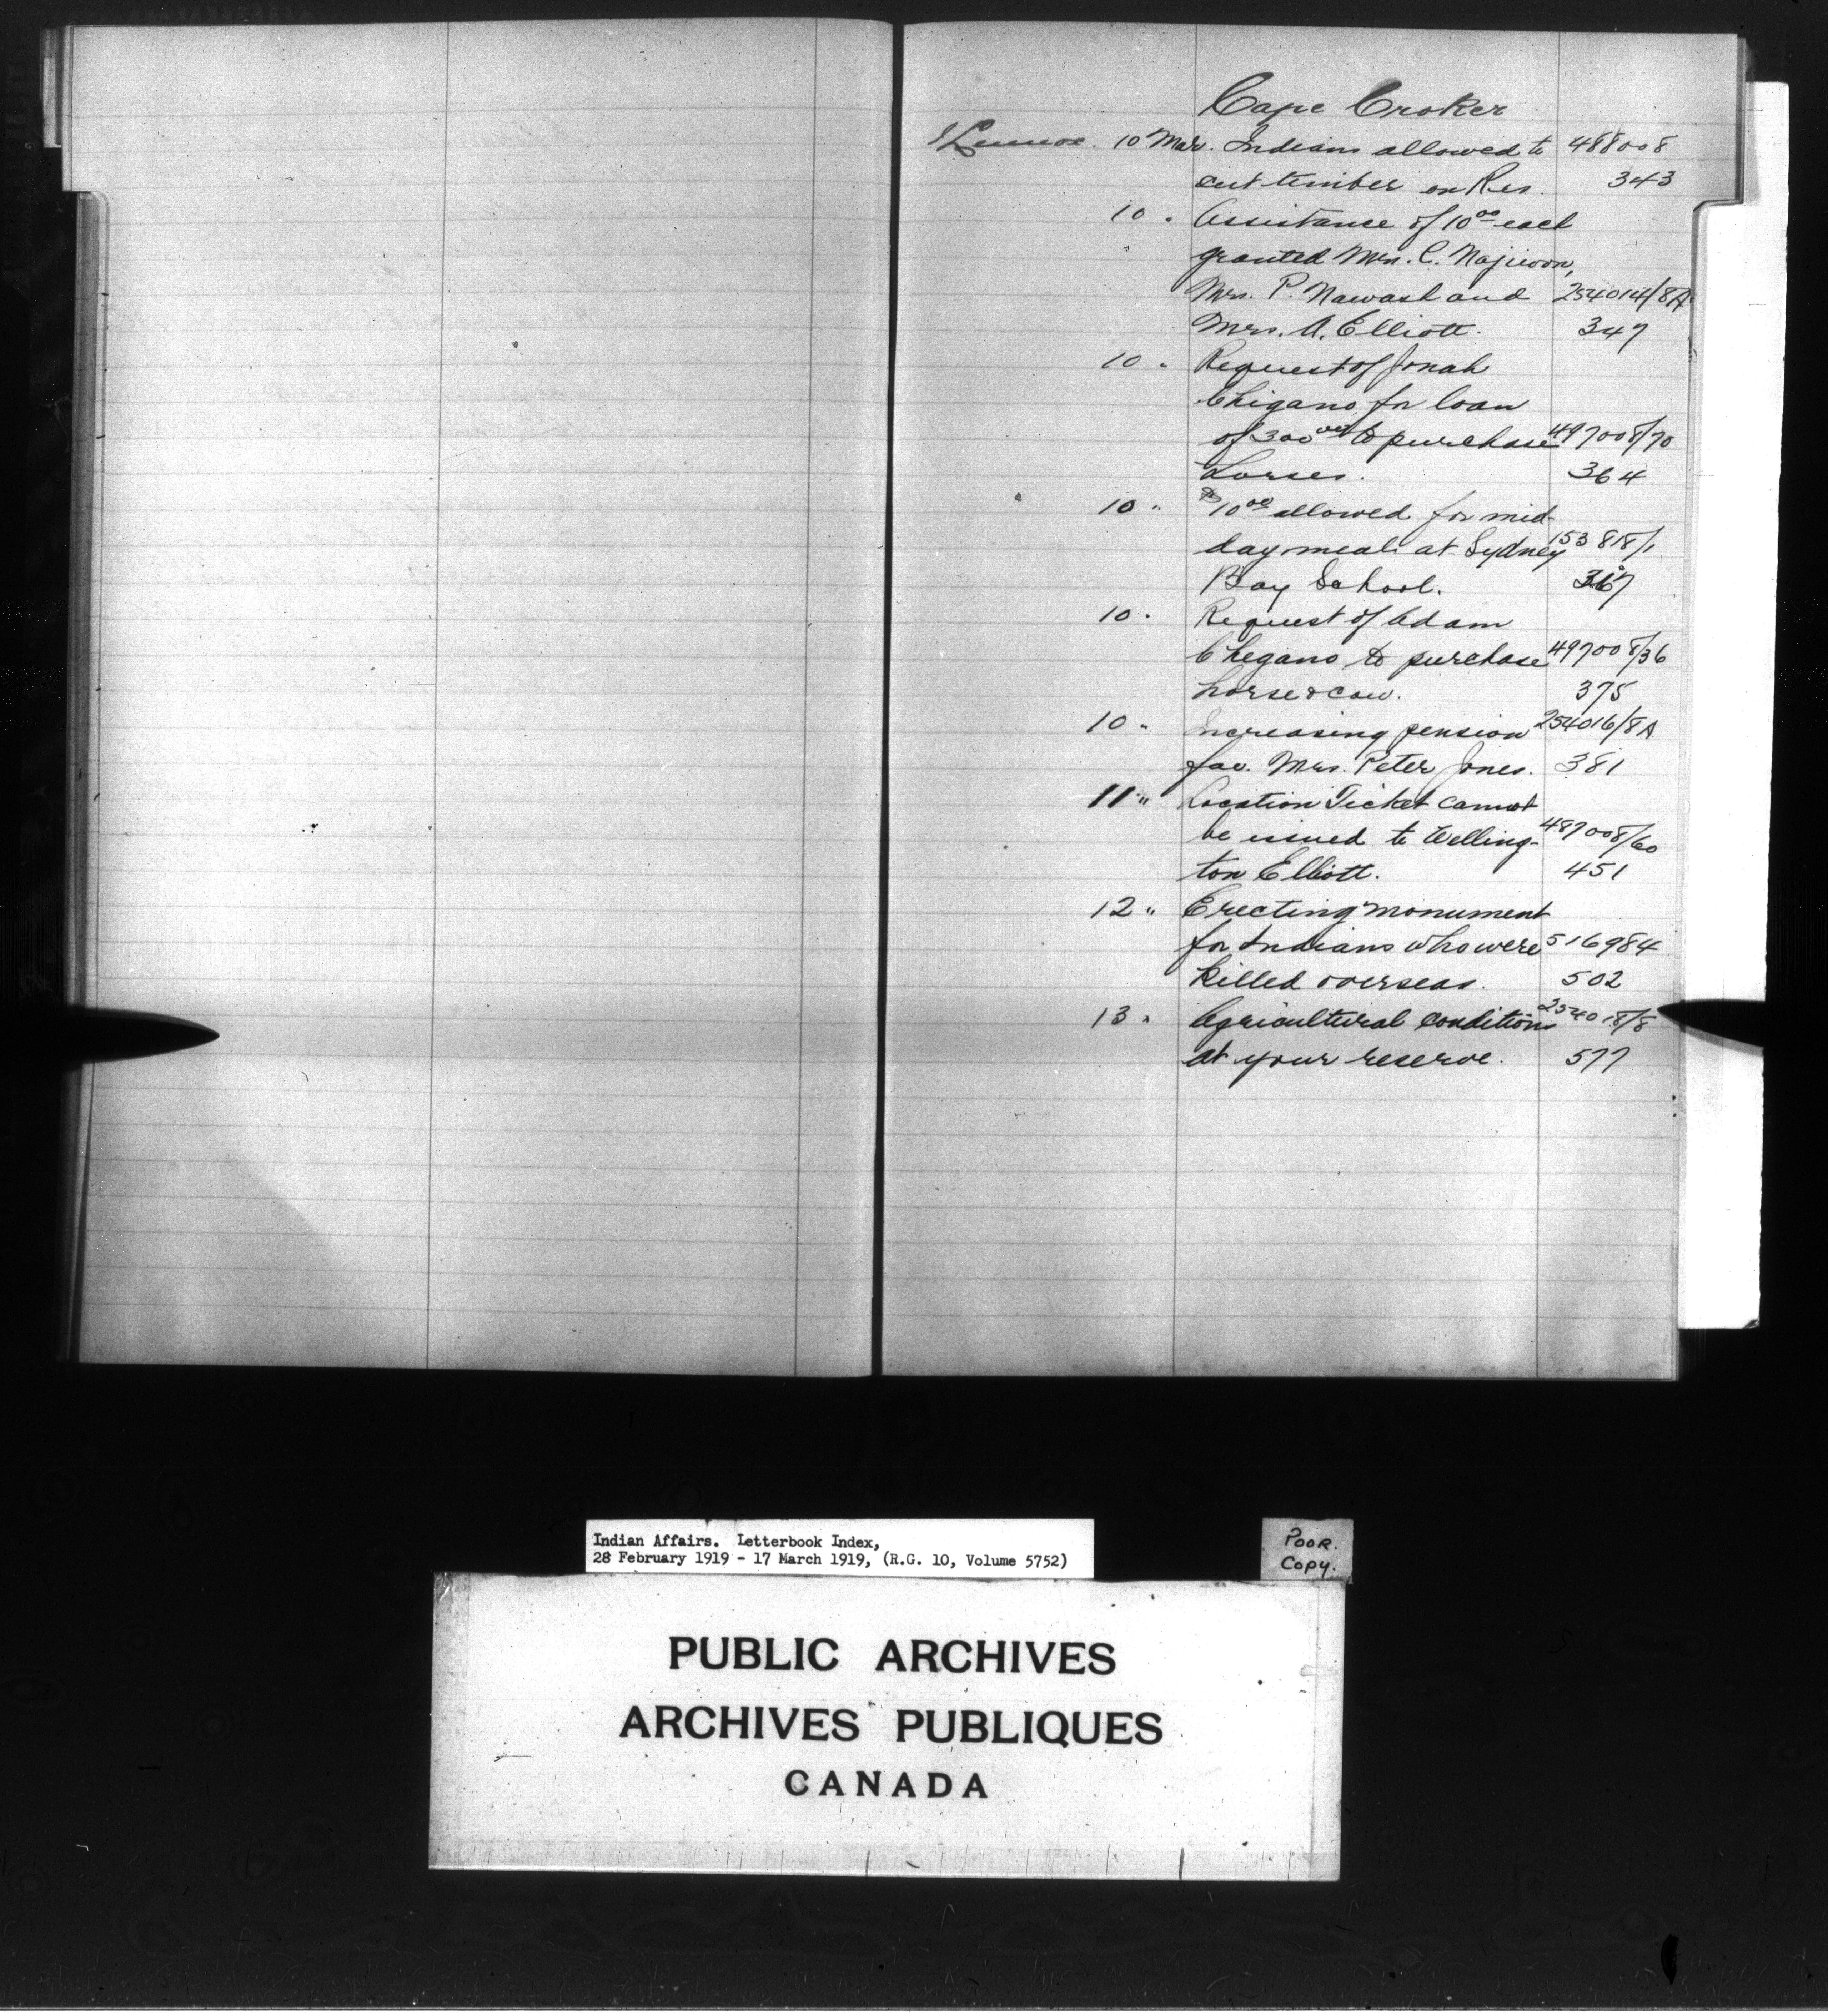 Cape Croker
Lennox. 10 Mar. Indians allowed to 488008
cut timber on Res. 343
10 " Assistance of 10.00 each
" granted Mrs. C. Najiwon,
Mrs. P. Nawash and 254014/8A
Mrs. A. Elliott. 347
10 " Request of Jonah
Chigano for loan
of 300.00 to purchase 497008/70
horses. 364
10 " $10.00 allowed for mid-
day meals at Sydney 153818/1
Bay School. 367
10 " Request of Adam
Chegano to purchase 497008/36
horse & cow. 375
10 " Increasing pension 254016/8A
fav. Mrs. Peter Jones. 381
11 " Location Ticket cannot
be issued to Welling- 487008/60
ton Elliott. 451
12 " Erecting monument
for Indians who were 516984
killed overseas. 502
13 " Agricultural conditions 254018/8
at your reserve. 577
Indian Affairs. Letterbook Index,
28 February 1919 - 17 March 1919, (R.G. 10, Volume 5752)
POOR.
COPY.
PUBLIC ARCHIVES
ARCHIVES PUBLIQUES
CANADA